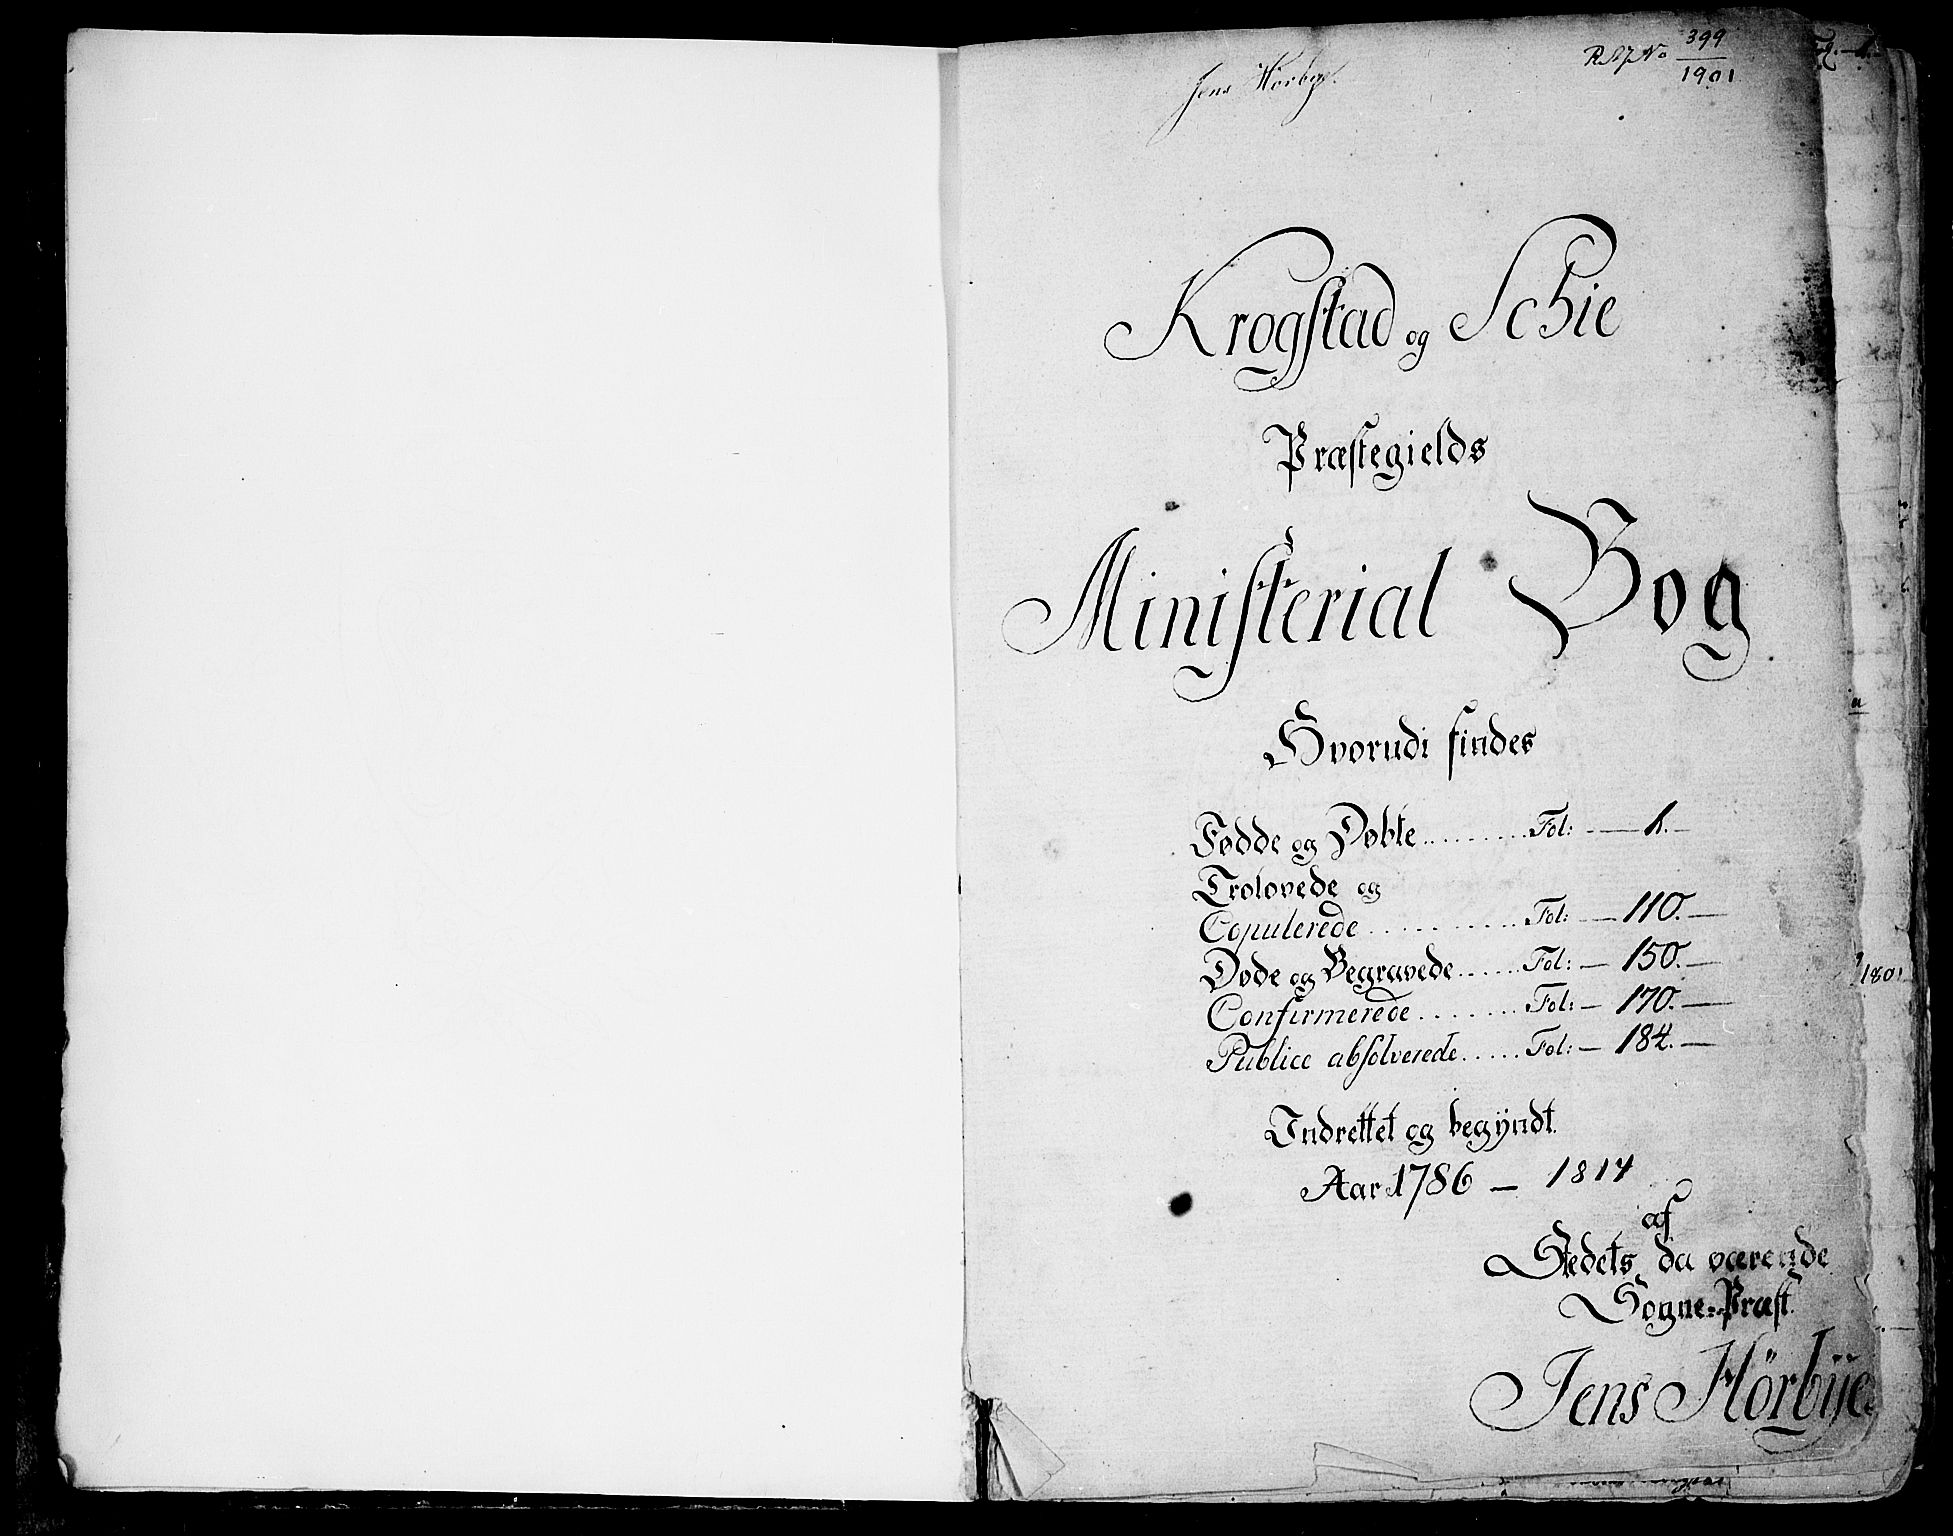 Jens Hörbye.
No 399
1901
Krogstad og Schie
Præstegields
Ministerial Bog
Hvorudi findes
Fødde og Døbte ......... Fol: — 1. —
Trolovede og
Copulerede ........... Fol: — 110. —
Døde og Begravede ...... Fol: — 150. —
Confirmerede ........ Fol: — 170. —
Publice absolverede ..... Fol: — 184. —
Indrettet og begÿndt
Aar 1786 — 1814
af
Stedets da værende
Sogne-Præst.
Jens Hörbÿe.
1801